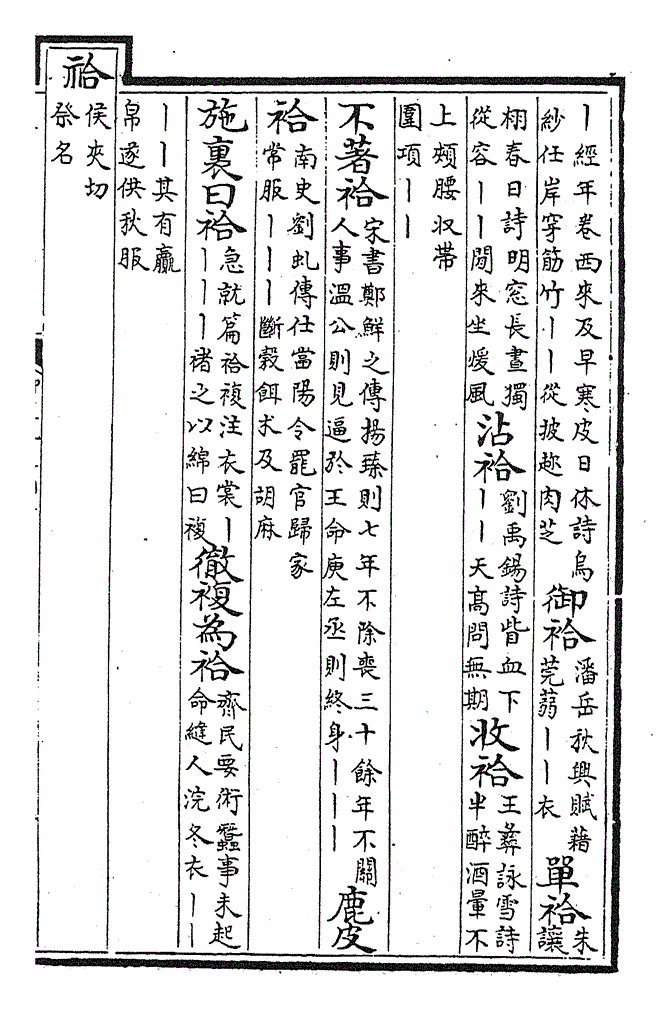 丨經年卷西來及早寒皮日休詩烏
紗任岸穿筋竹丨丨從披趂肉芝
御袷
潘岳秋興賦藉
莞蒻丨丨衣
單袷
朱
讓
栩春日詩明窓長晝獨
從容丨丨閒來坐煖風
沾袷
劉禹錫詩眥血下
丨丨天髙問無期
收袷
王彞詠雪詩
半醉酒暈不
上頰腰収帶
圍項丨丨
不著袷
宋書鄭鮮之傳揚臻則七年不除喪三十餘年不關
人事溫公則見逼於王命庾左丞則終身丨丨丨
鹿皮
袷
南史劉虬傳仕當陽令罷官歸家
常服丨丨丨斷穀餌朮及胡麻
施裏曰袷
急就篇袷複注衣裳丨
丨丨丨褚之以綿曰複
徹複為袷
齊民要術蠶事未起
命縫人浣冬衣丨丨
丨丨其有嬴
帛遂供秋服
祫
侯夾切
祭名